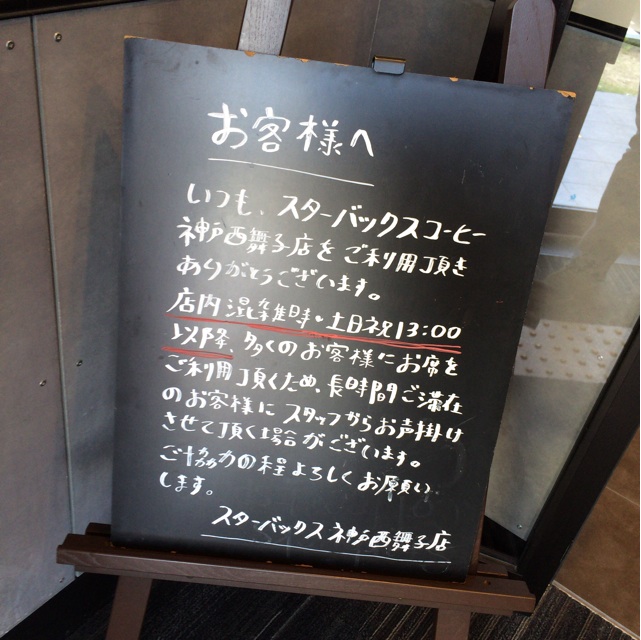 お客様へ
いつも、スターバックスコーヒー
神戸西舞子店をご利用頂き
ありがとうございます。
店内混雑時・土日祝13:00
以降、多くのお客様にお席を
ご利用頂くため、長時間ご滞在
のお客様にスタッフからお声掛け
させて頂く場合がございます。
ご協力の程よろしくお願い
します。
スターバックス神戸西舞子店